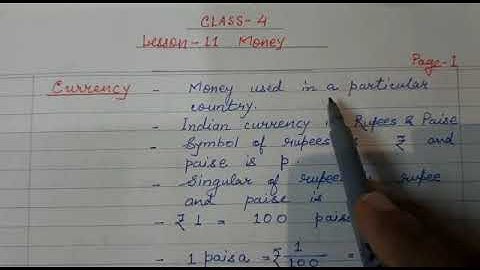 CLASS-4
Lesson-11 Money
Page-1
Currency - Money used in a particular
country.
- Indian currency Rupees & Paise
- Symbol of rupees ₹ and
paise is p.
- Singular of rupees rupee
and paise is
- ₹ 1 = 100 paise
- 1 paisa = ₹ 1/100 =